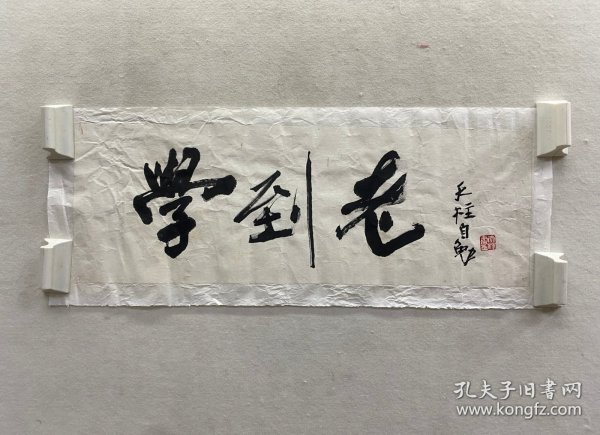 學到老
自勉
孔夫子旧書网
www.kongfz.com